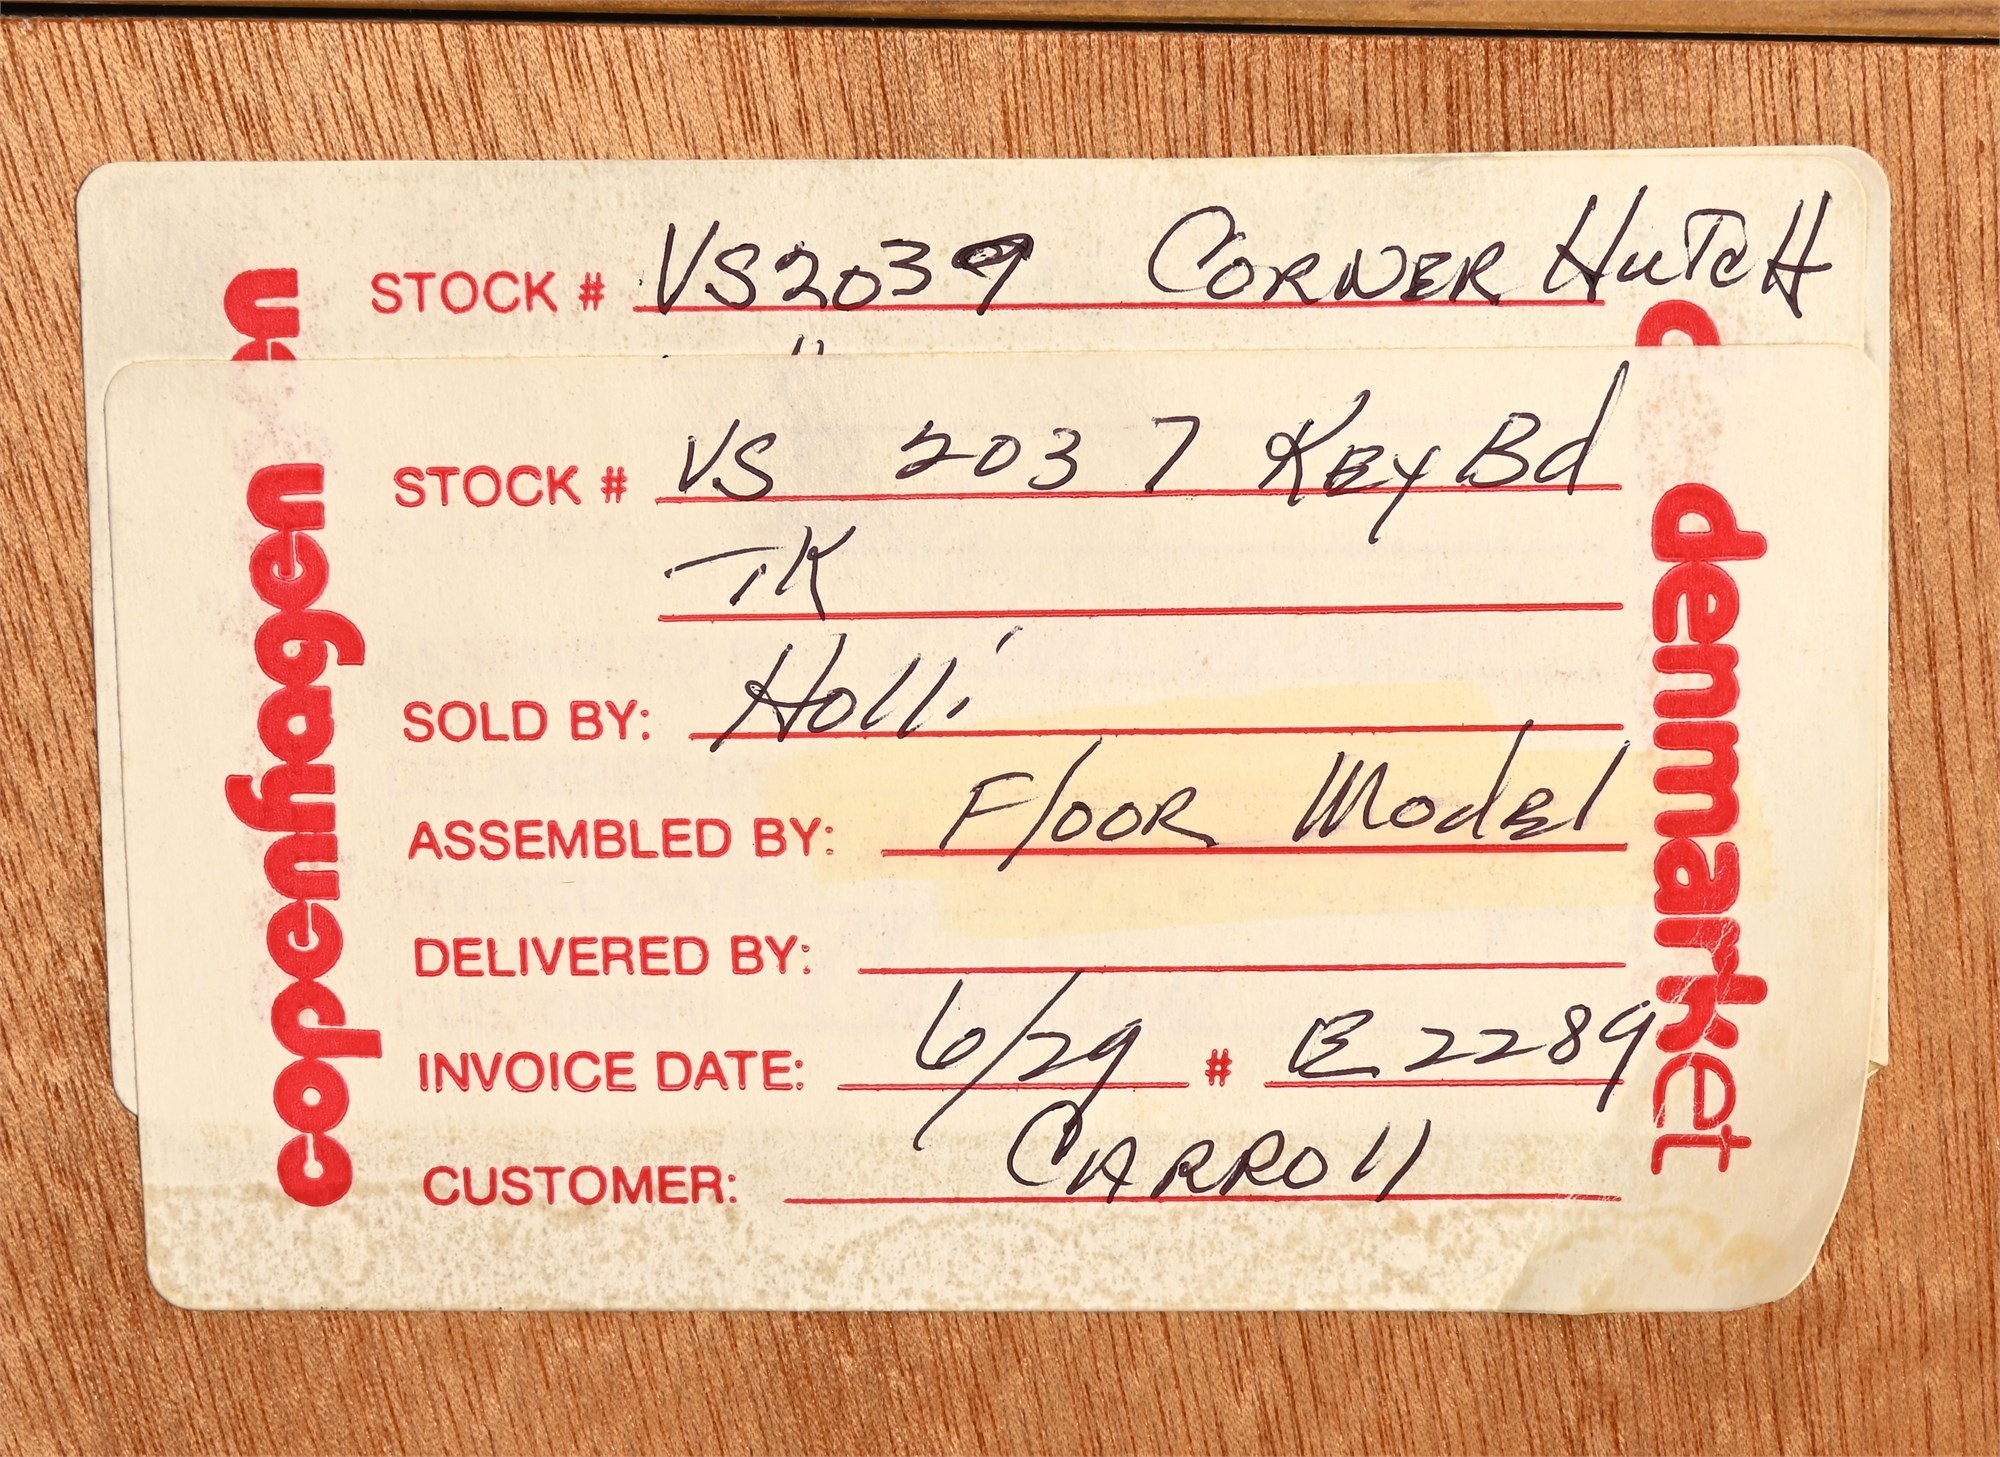 STOCK # VS2039 CORNER HUTCH
STOCK # VS 2037 KEY Bd
TK
SOLD BY: Holli
ASSEMBLED BY: Floor Model
DELIVERED BY:
INVOICE DATE: 6/29 # E2289
CUSTOMER: CARROll
copenhagen
denmarket